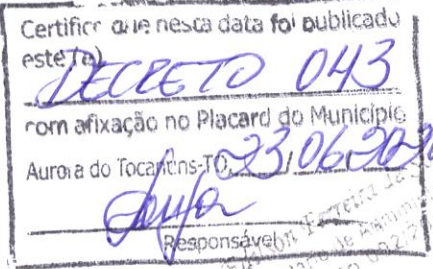 Certifico que nesta data foi publicado
este(a)
DECRETO 043
com afixação no Placard do Município
Aurora do Tocantins-TO, 23/06/
Responsável